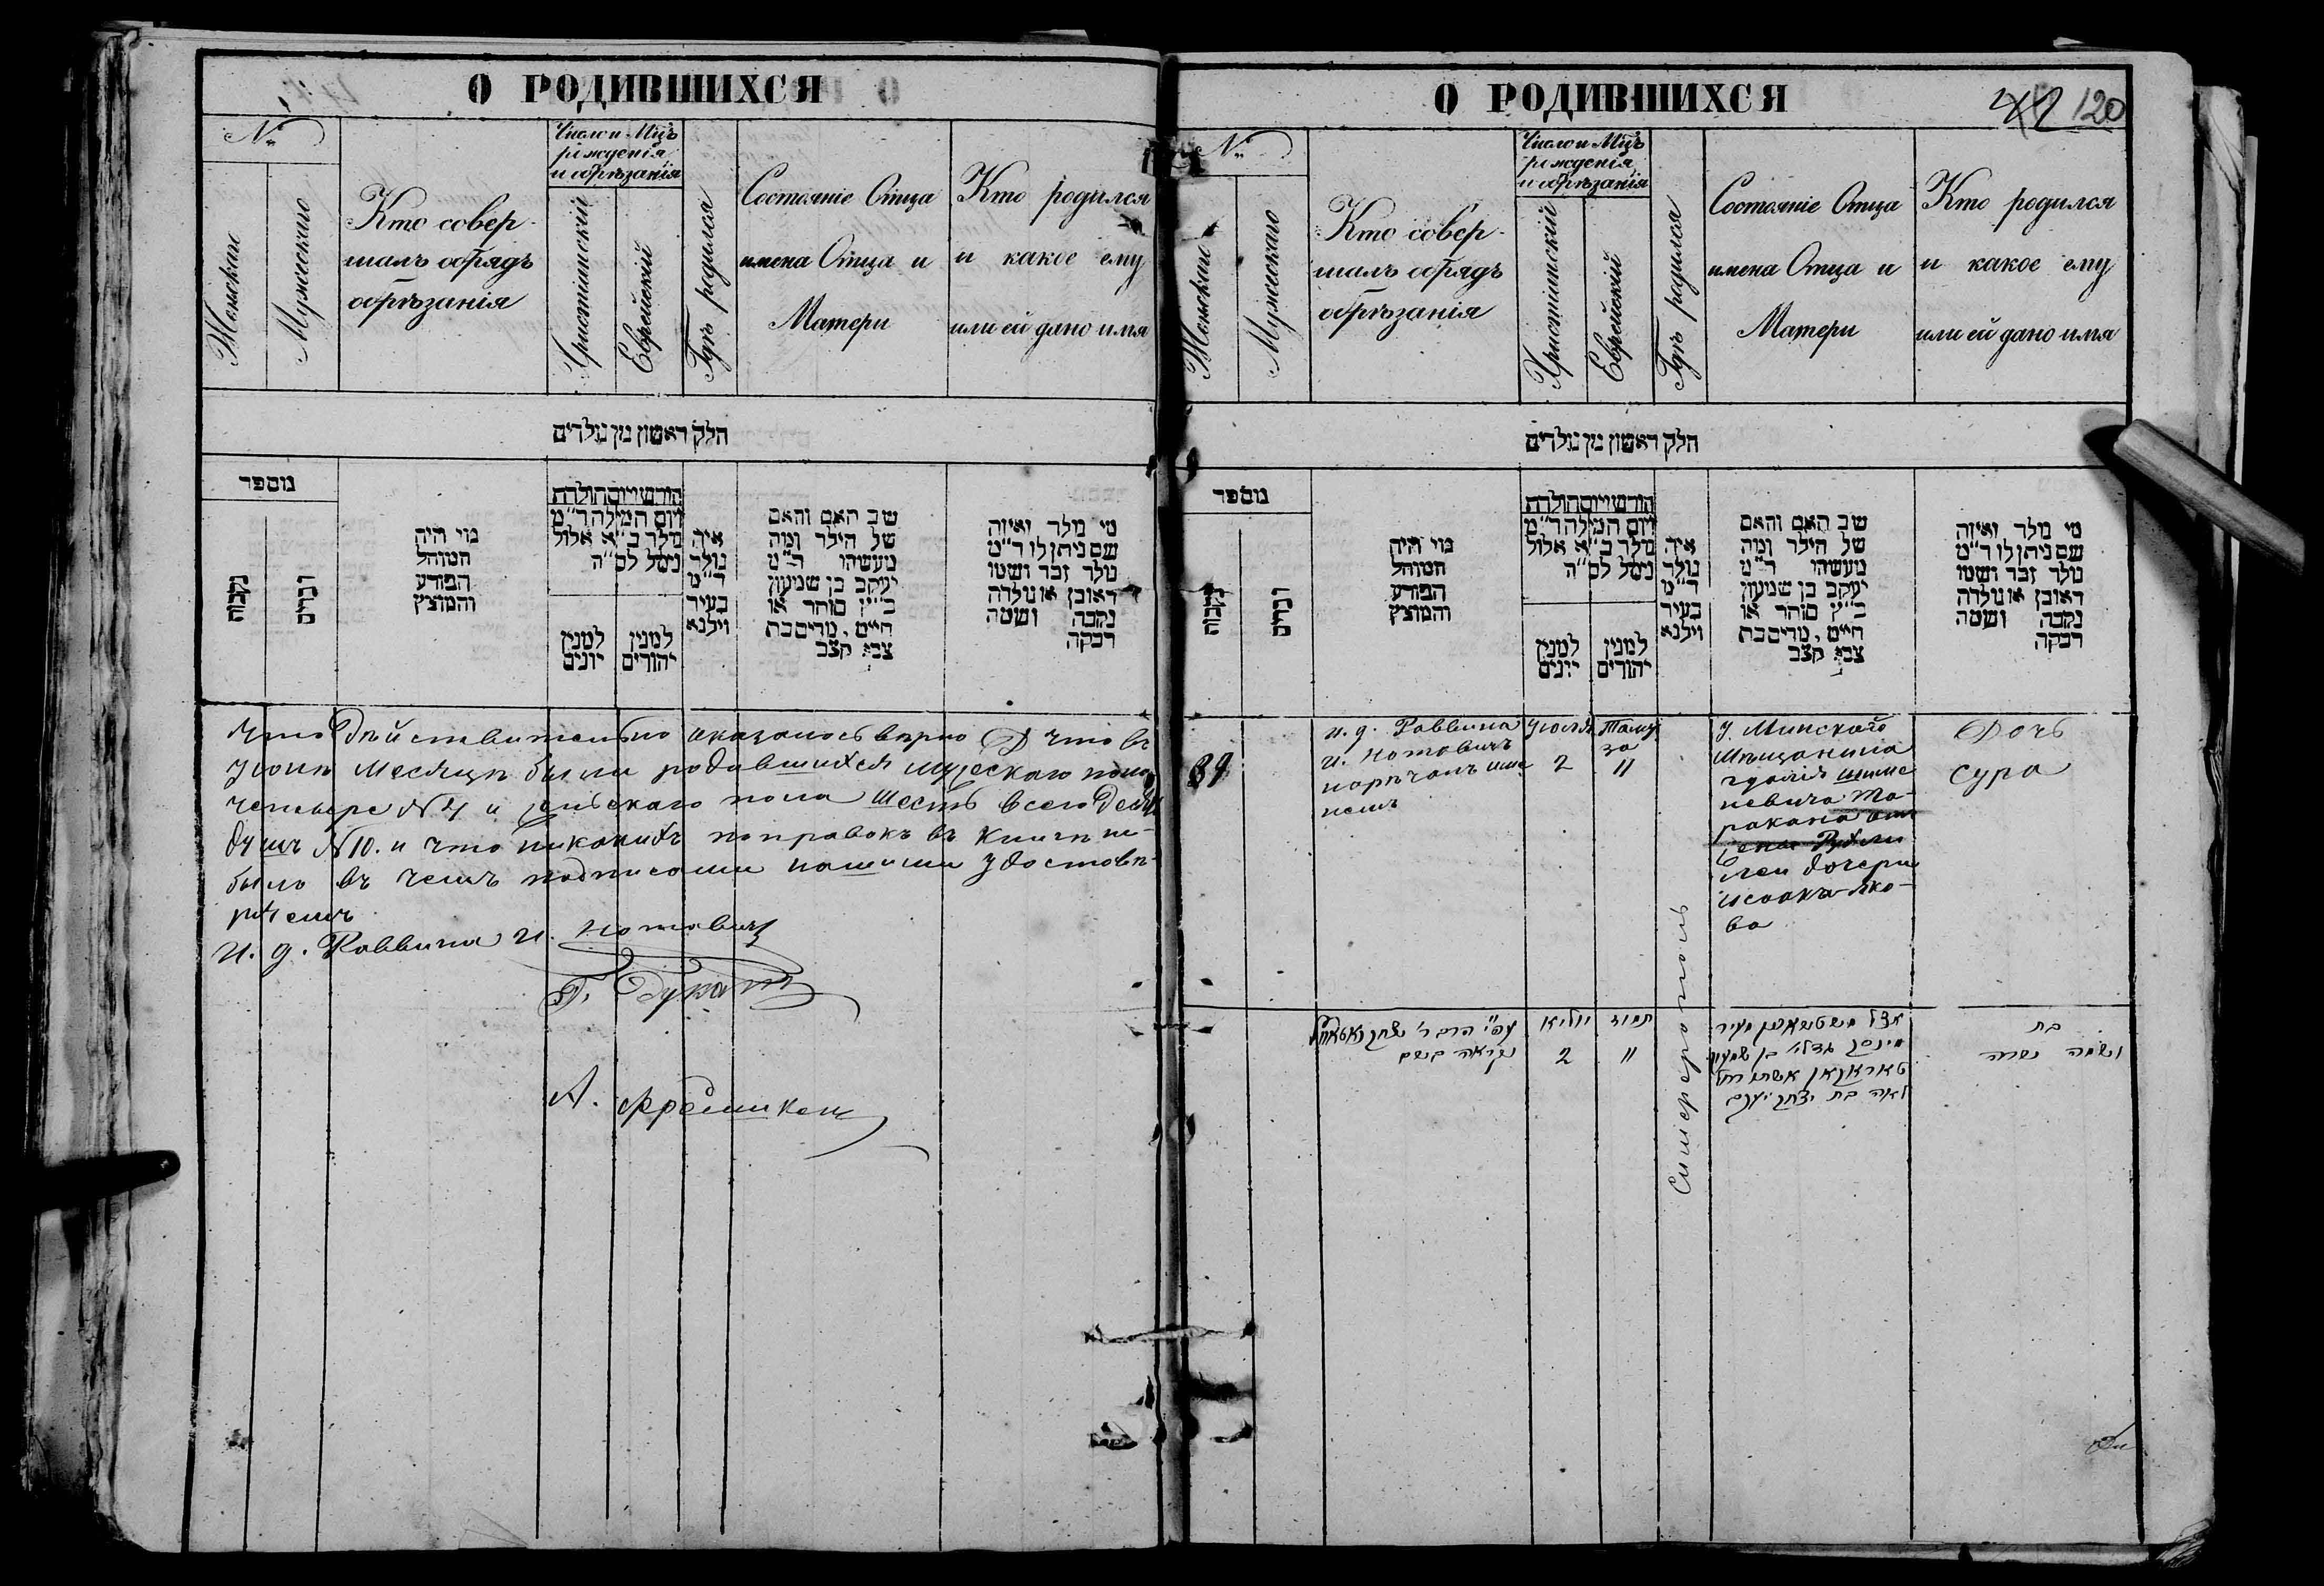 О РОДИВШИХСЯ
№
Женскаго
Мужескаго
Кто совер-
шалъ обрядъ
обрѣзанія
Число и Мцъ
рожденія
и обрѣзанія
Христіанскій
Еврейскій
Гдѣ родился
Состояніе Отца
имена Отца и
Матери
Кто родился
и какое ему
или ей дано имя
חלק ראשון מן נולדים
מספר
נקבות
זכרים
מי היה
המוהל
הפורע
והמוצץ
חודש ויום הולדת
ויום המילה ר״מ
נולד ב״א אלול
נימל לס״ה
למנין
יונים
למנין
יהודים
איה
נולד
ד״מ
בעיר
וילנא
שב האם והאם
של הילד ומה
מעשיהו ד״מ
יעקב בן שמעון
כ״ץ סוחר או
חייט, מרים בת
צבי קצב
מי נולד ואיזה
שם ניתן לו ד״מ
נולד זכר ושמו
ראובן או נולדה
נקבה ושמה
רבקה
Что Дѣйствительно оказалось вѣрно Д что въ
Іюнѣ Месяцѣ были родившихся мужескаго пола
четыре №4 и женскаго пола шесть всего Десять
душъ №10. и что никакихъ поправокъ въ Книгѣ не-
было въ чемъ подписями нашими удостовѣ-
ряемъ
И. д. Раввина И. Нотовичъ
А.
О РОДИВШИХСЯ
120
№
Женскаго
Мужескаго
Кто совер-
шалъ обрядъ
обрѣзанія
Число и Мцъ
рожденія
и обрѣзанія
Христіанскій
Еврейскій
Гдѣ родился
Состояніе Отца
имена Отца и
Матери
Кто родился
и какое ему
или ей дано имя
חלק ראשון מן נולדים
מספר
נקבות
זכרים
מי היה
המוהל
הפורע
והמוצץ
חודש ויום הולדת
ויום המילה ר״מ
נולד ב״א אלול
נימל לס״ה
למנין
יונים
למנין
יהודים
איה
נולד
ד״מ
בעיר
וילנא
שב האם והאם
של הילד ומה
מעשיהו ד״מ
יעקב בן שמעון
כ״ץ סוחר או
חייט, מרים בת
צבי קצב
מי נולד ואיזה
שם ניתן לו ד״מ
נולד זכר ושמו
ראובן או נולדה
נקבה ושמה
רבקה
39
и. д. Раввина
И. Нотовичъ
нарѣчанъ име
немъ
Іюля
2
Таму
за
11
Симферополь
У Минскаго
Мѣщанина
Гдалія Шиме
невича Та-
ракана
Леи дочери
Исаакъ Яко-
ва
Дочь
Сура
נקראה בשם
יוליא
2
תמוז
11
לאה בת יצחק יעקב
בת
ושמה שרה